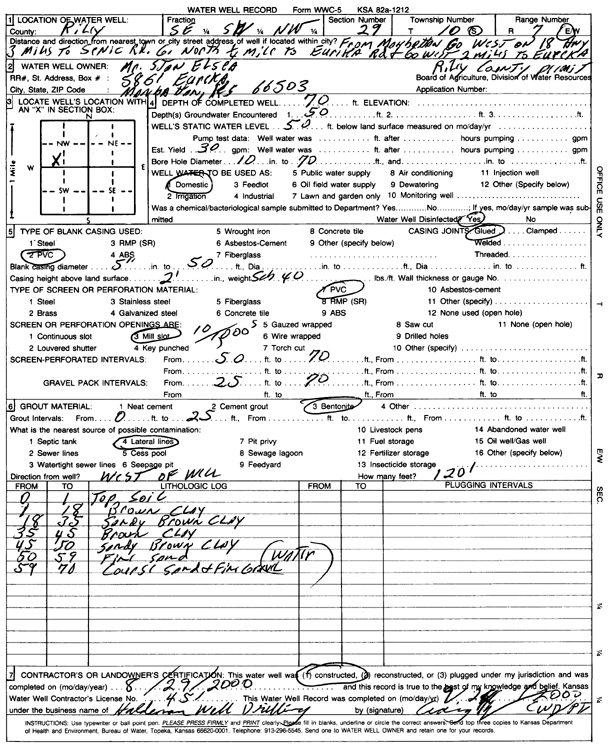 WATER WELL RECORD Form WWC-5 KSA 82a-1212
1 LOCATION OF WATER WELL: Fraction Section Number Township Number Range Number
County: Riley SE ¼ SW ¼ NW ¼ 29 T 10 S R 7 E/W
Distance and direction from nearest town or city street address of well if located within city? From Manhattan Go West on 18 Hwy
3 Miles to Scenic Rd. Go North 1 Mile to Eureka Rd & Go West 2 Miles to Eureka
2 WATER WELL OWNER: Mr. Stan Elsea Riley County Permit
RR#, St. Address, Box # : 5861 Eureka Board of Agriculture, Division of Water Resources
City, State, ZIP Code : Manhattan, KS 66503 Application Number:
3 LOCATE WELL'S LOCATION WITH AN "X" IN SECTION BOX:
N
NW NE
W X E
SW SE
S
1 Mile
4 DEPTH OF COMPLETED WELL 70 ft. ELEVATION:
Depth(s) Groundwater Encountered 1. 50 ft. 2. ft. 3. ft.
WELL'S STATIC WATER LEVEL 50 ft. below land surface measured on mo/day/yr
Pump test data: Well water was ft. after hours pumping gpm
Est. Yield 30 gpm: Well water was ft. after hours pumping gpm
Bore Hole Diameter 10 in. to 70 ft., and in. to ft.
WELL WATER TO BE USED AS: 5 Public water supply 8 Air conditioning 11 Injection well
1 Domestic 3 Feedlot 6 Oil field water supply 9 Dewatering 12 Other (Specify below)
2 Irrigation 4 Industrial 7 Lawn and garden only 10 Monitoring well
Was a chemical/bacteriological sample submitted to Department? Yes No ; If yes, mo/day/yr sample was submitted
Water Well Disinfected? Yes No
5 TYPE OF BLANK CASING USED: 5 Wrought iron 8 Concrete tile CASING JOINTS: Glued Clamped
1 Steel 3 RMP (SR) 6 Asbestos-Cement 9 Other (specify below) Welded
2 PVC 4 ABS 7 Fiberglass Threaded
Blank casing diameter 5" in. to 50 ft., Dia in. to ft., Dia in. to ft.
Casing height above land surface 2' in., weight Sch 40 lbs./ft. Wall thickness or gauge No.
TYPE OF SCREEN OR PERFORATION MATERIAL: 7 PVC 10 Asbestos-cement
1 Steel 3 Stainless steel 5 Fiberglass 8 RMP (SR) 11 Other (specify)
2 Brass 4 Galvanized steel 6 Concrete tile 9 ABS 12 None used (open hole)
SCREEN OR PERFORATION OPENINGS ARE: 10/1000's 5 Gauzed wrapped 8 Saw cut 11 None (open hole)
1 Continuous slot 3 Mill slot 6 Wire wrapped 9 Drilled holes
2 Louvered shutter 4 Key punched 7 Torch cut 10 Other (specify)
SCREEN-PERFORATED INTERVALS: From 50 ft. to 70 ft., From ft. to ft.
From ft. to ft., From ft. to ft.
GRAVEL PACK INTERVALS: From 25 ft. to 70 ft., From ft. to ft.
From ft. to ft., From ft. to ft.
6 GROUT MATERIAL: 1 Neat cement 2 Cement grout 3 Bentonite 4 Other
Grout Intervals: From 0 ft. to 25 ft., From ft. to ft., From ft. to ft.
What is the nearest source of possible contamination: 10 Livestock pens 14 Abandoned water well
1 Septic tank 4 Lateral lines 7 Pit privy 11 Fuel storage 15 Oil well/Gas well
2 Sewer lines 5 Cess pool 8 Sewage lagoon 12 Fertilizer storage 16 Other (specify below)
3 Watertight sewer lines 6 Seepage pit 9 Feedyard 13 Insecticide storage
Direction from well? West of Well How many feet? 120'
FROM TO LITHOLOGIC LOG FROM TO PLUGGING INTERVALS
0 1 Top Soil
1 18 Brown Clay
18 35 Sandy Brown Clay
35 45 Brown Clay
45 50 Sandy Brown Clay
50 59 Fine Sand (Water)
59 70 Course Sand & Fine Gravel
7 CONTRACTOR'S OR LANDOWNER'S CERTIFICATION: This water well was (1) constructed, (2) reconstructed, or (3) plugged under my jurisdiction and was
completed on (mo/day/year) 8/29/2000 and this record is true to the best of my knowledge and belief. Kansas
Water Well Contractor's License No. 451 This Water Well Record was completed on (mo/day/yr) 2000
under the business name of Haldeman Well Drilling by (signature)
INSTRUCTIONS: Use typewriter or ball point pen. PLEASE PRESS FIRMLY and PRINT clearly. Please fill in blanks, underline or circle the correct answers. Send top three copies to Kansas Department
of Health and Environment, Bureau of Water, Topeka, Kansas 66620-0001. Telephone: 913-296-5545. Send one to WATER WELL OWNER and retain one for your records.
OFFICE USE ONLY
T
R
E/W
SEC.
¼
¼
¼